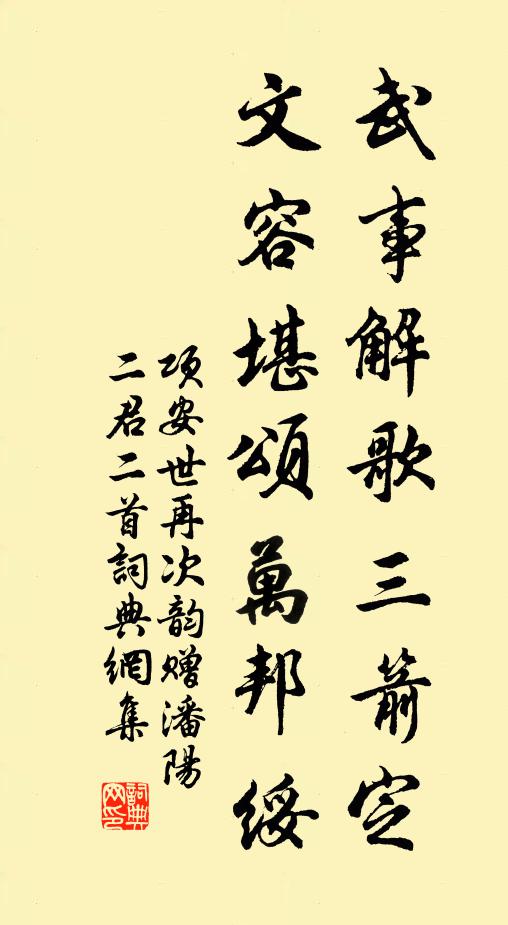 武事解歌三箭定
文容堪頌萬邦綏
項安世再次韵贈潘陽
二君二首詞典網集
詞典
网印